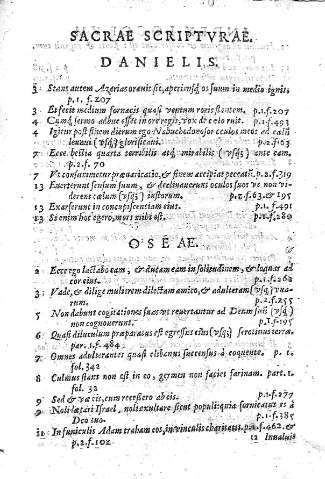 SACRAE SCRIPTVRAE.
DANIELIS.
3 Stans autem Azarias orauit sic, aperiensq́; os suum in medio ignis,
p.1, f. 207
3 Et fecit medium fornacis quasi ventum roris flantem. p.1.f.207
4 Cumq́; sermo adhuc esset in ore regis, vox de cœlo ruit. p.1.f.493
4 Igitur post finem dierum ego Nabuchodonosor oculos meos ad cælū
leuaui (vsq́;) glorificaui. p.2.f.63
7 Ecce bestia quarta terribilis atq́; mirabilis (vsq́;) ante eam.
p.2.f. 70
7 Vt consummetur præuaricatio, & finem accipiat peccatū. p.2.f.319
13 Euerterunt sensum suum, & declinauerunt oculos suos vt non vi-
derent cælum (vsq́;) iustorum. p.2.f.63.& 195
13 Exarserunt in concupiscentiam eius. p.1. f.491
13 Si enim hoc egero, mors mihi est. f.280
OSEAE.
2 Ecce ego lactabo eam, & ducam eam in solitudinem, & loquar ad
cor eius. p.1.f.268
3 Vade, & dilige mulierem dilectam amico, & adulteram (vsq́;) vua-
rum. p.2.f.255
5 Non dabunt cogitationes suas vt reuertantur ad Deum suū (vsq́;)
non cognouerunt. p.1.f.195
6 Quasi diluculum præparatus est egressus eius (vsq́;) serotinus terræ.
par.1.f. 464.
7 Omnes adulterantes quasi clibanus succensus à coquente. p. 1.
fol. 342
8 Culmus stans non est in eo, germen non faciet farinam. part.1.
fol. 32
9 Sed & væ eis, cum recessero ab eis. p.1.f.277
9 Noli lætari Israel, noli exultare sicut populi: quia fornicatus es à
Deo tuo. p.1.f.385
11 In funiculis Adam traham eos, in vinculis charitatis. p.1.f.462.&
p.2.f.102.
12 Inualuit